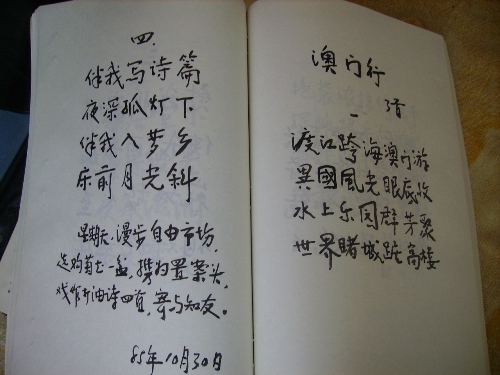 四
伴我写诗篇
夜深孤灯下
伴我入梦乡
床前月光斜
星期天,漫步自由市场,
选购菊花一盆,携归置案头,
戏作打油诗四首,寄与知友。
85年10月30日
澳门行
一
渡江跨海澳门游
異國風光眼底收
水上乐园群芳聚
世界賭城高楼